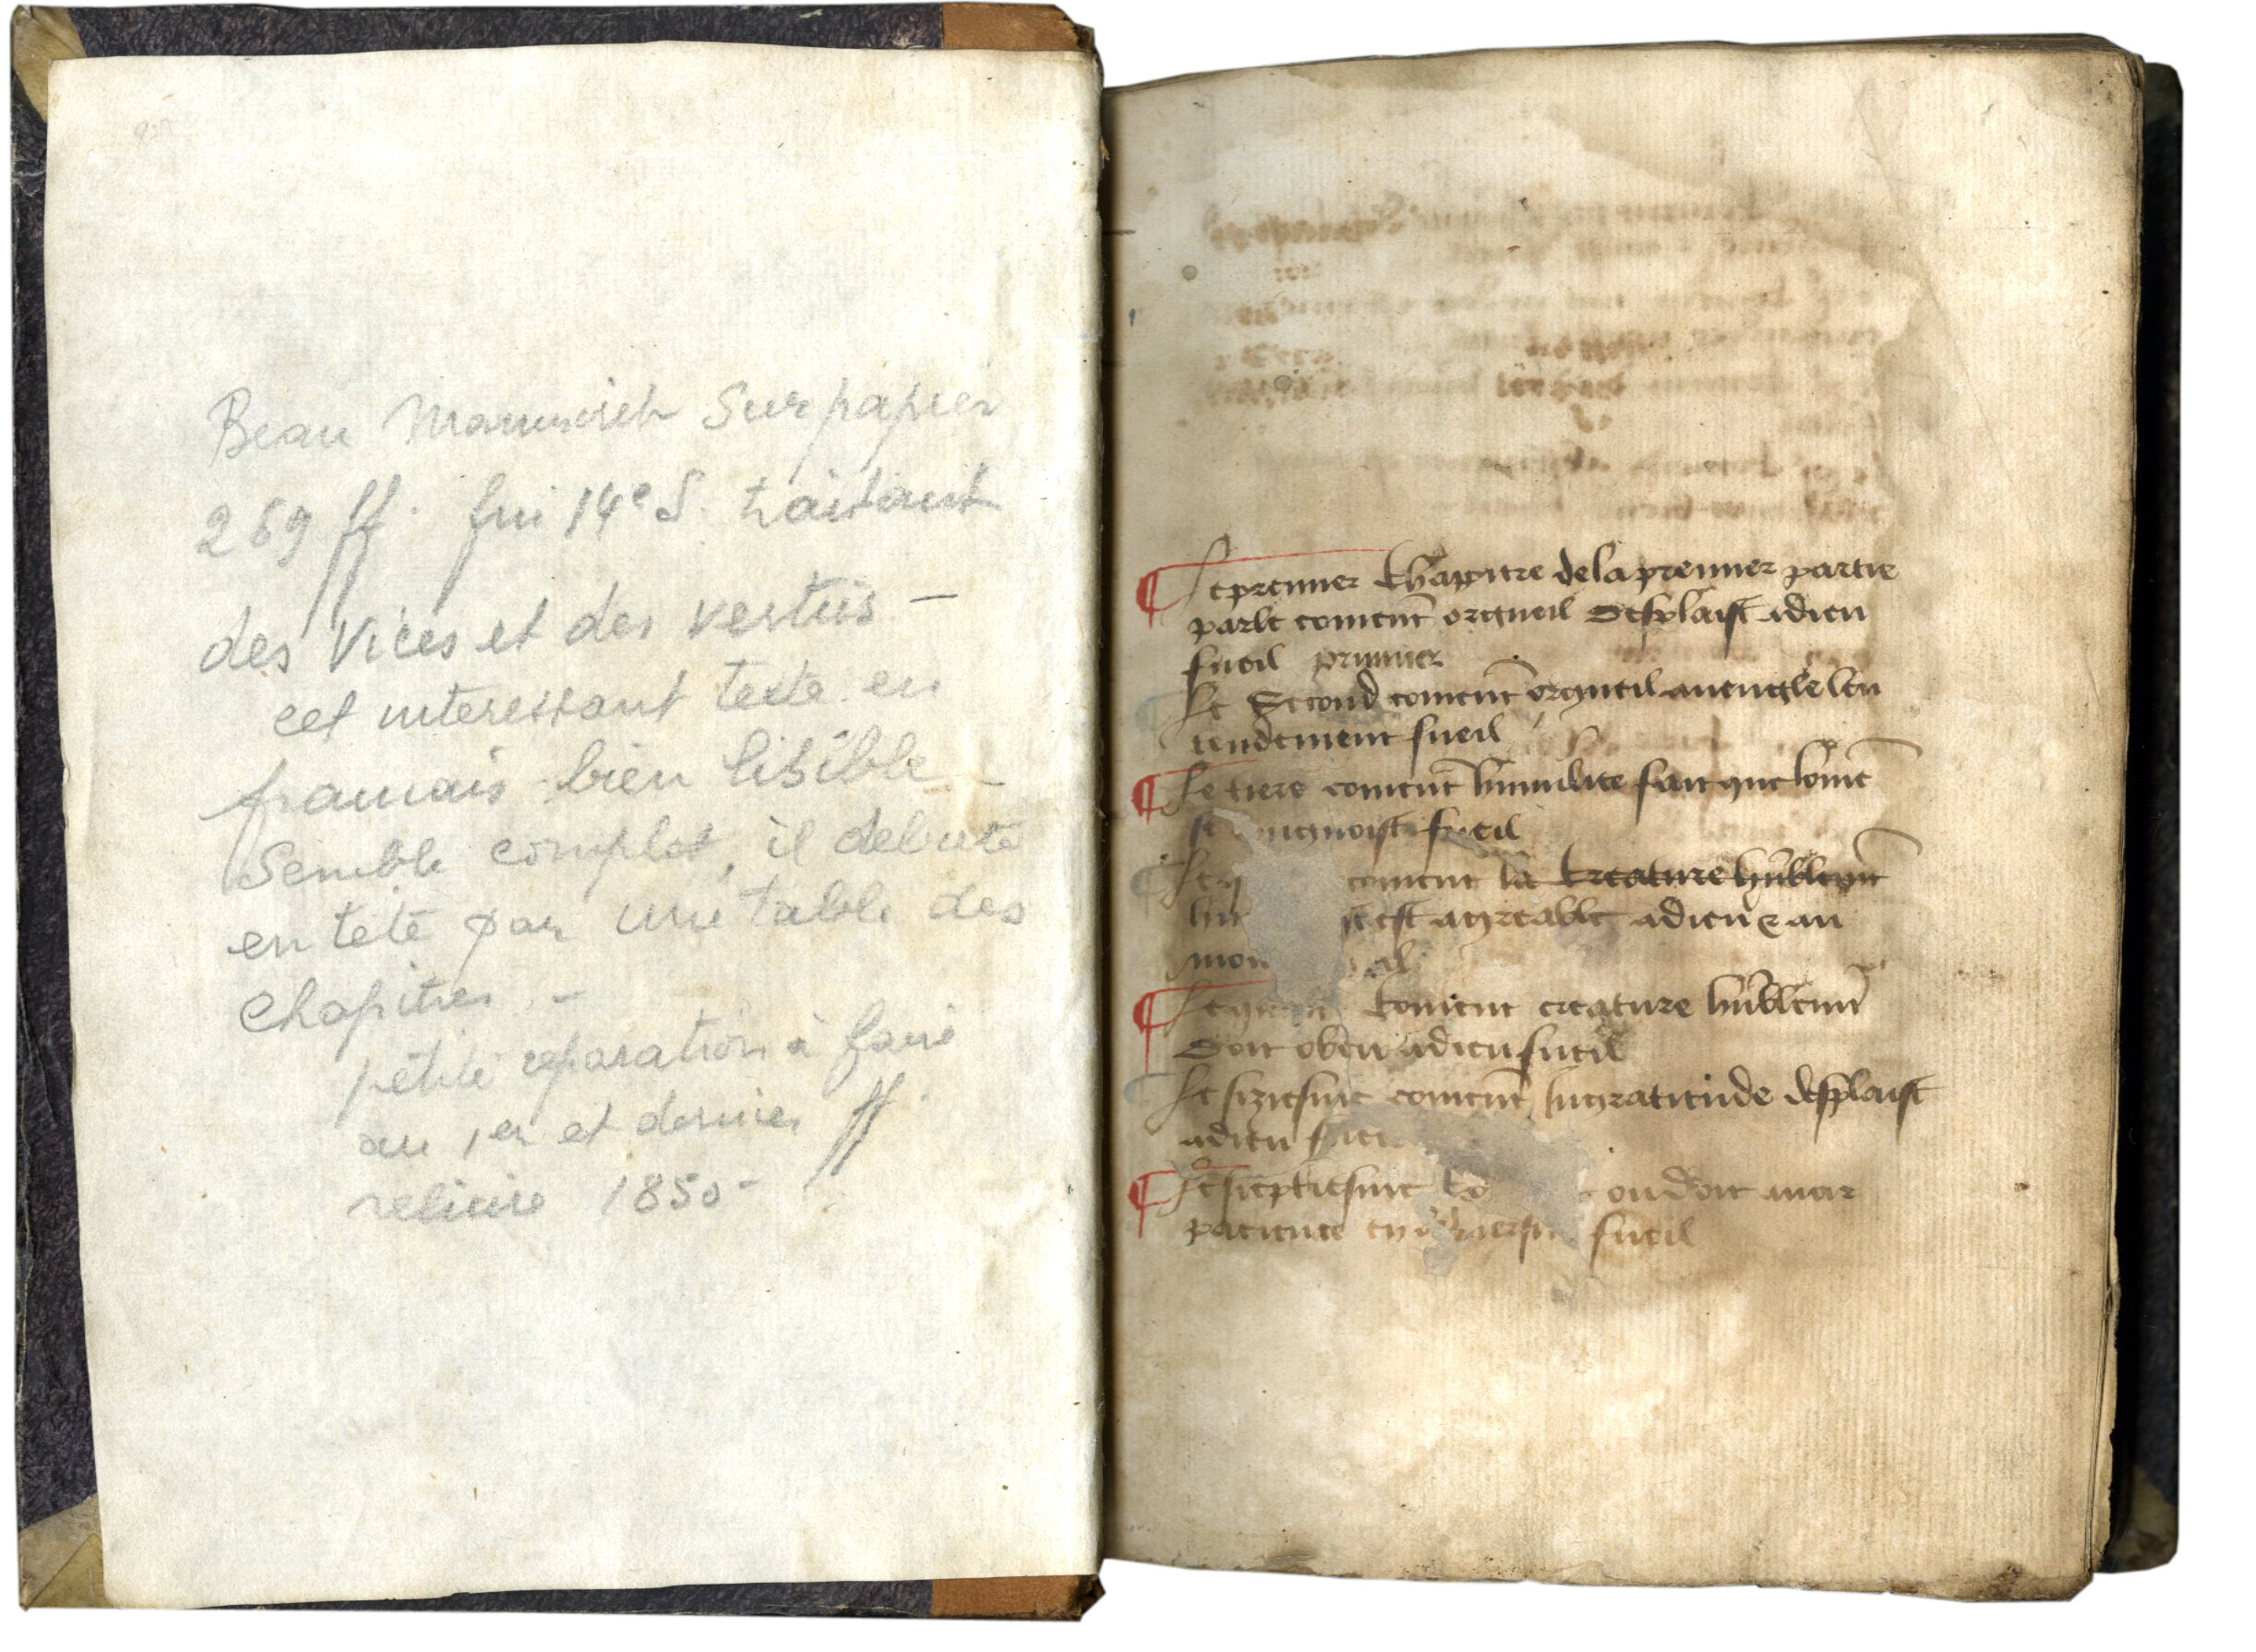 Beau Manuscrit Sur papier
269 ff. fin 14e S. traitant
des Vices et des vertus –
cet interessant texte en
francais bien lisible –
Semble complet, il debute
en tete par une table des
chapitres –
petite reparation à faire
au 1er et dernier ff.
reliure 1850 –
Le premier chapitre de la premier partie
parle coment orgueil desplaist a dieu
fueil primier
Le Second coment orgueil auengle len
tendement fueil
Le tiers coment humilite fait que lome
se fueil
coment la creature humblement
est agreable a dieu & au
mon
Le coment creature humblement
doit obeir a dieu fueil
Le siziesme coment Ingratitude desplaist
a dieu
Le sieptiesme on doit auoir
pacience en fueil